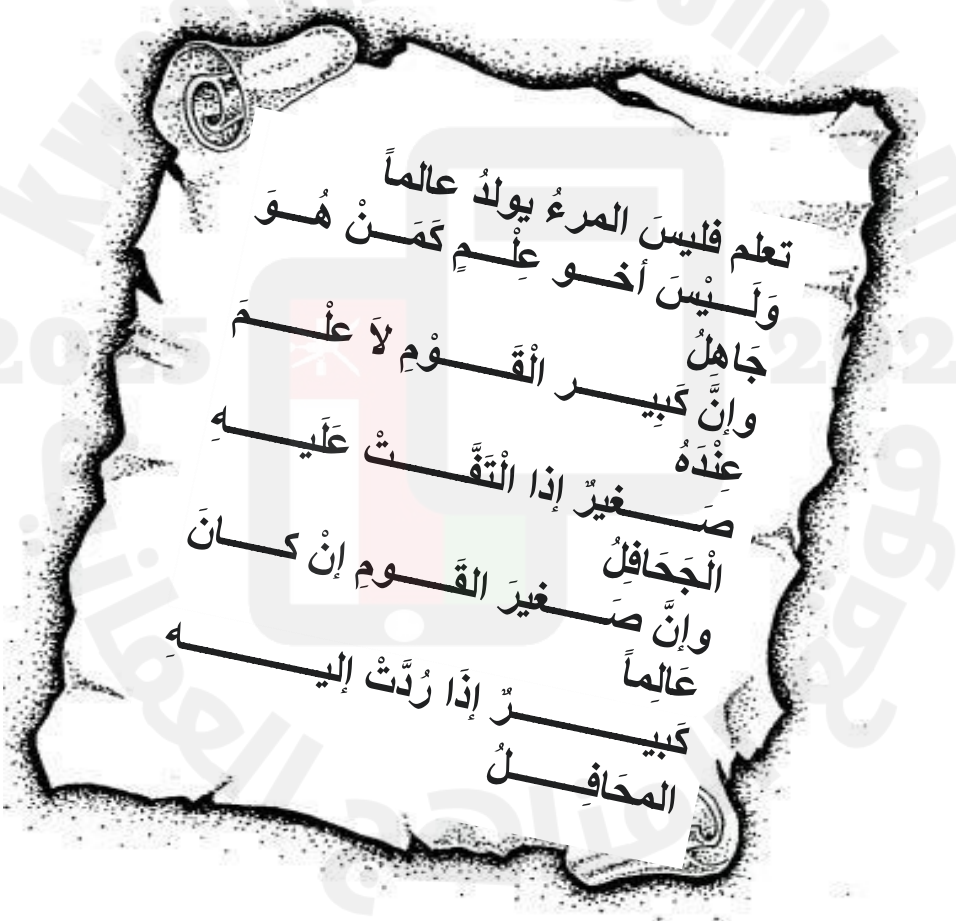 تعلم فليسَ المرءُ يولدُ عالماً
وَلَـــيْسَ أخـــو عِلْـــمٍ كَمَـــنْ هُـــوَ
جَاهِلُ
وإنَّ كَبِيـــر الْقَـــوْمِ لاَ علْـــمَ
عِنْدَهُ
صَـــغيرٌ إذا الْتَفَّـــتْ عَلَيـــهِ
الْجَحَافِلُ
وإنَّ صَـــغيرَ القَـــومِ إنْ كـــانَ
عَالِماً
كَبيـــرٌ إذَا رُدَّتْ إليـــهِ
المحَافِـــلُ
2025
202